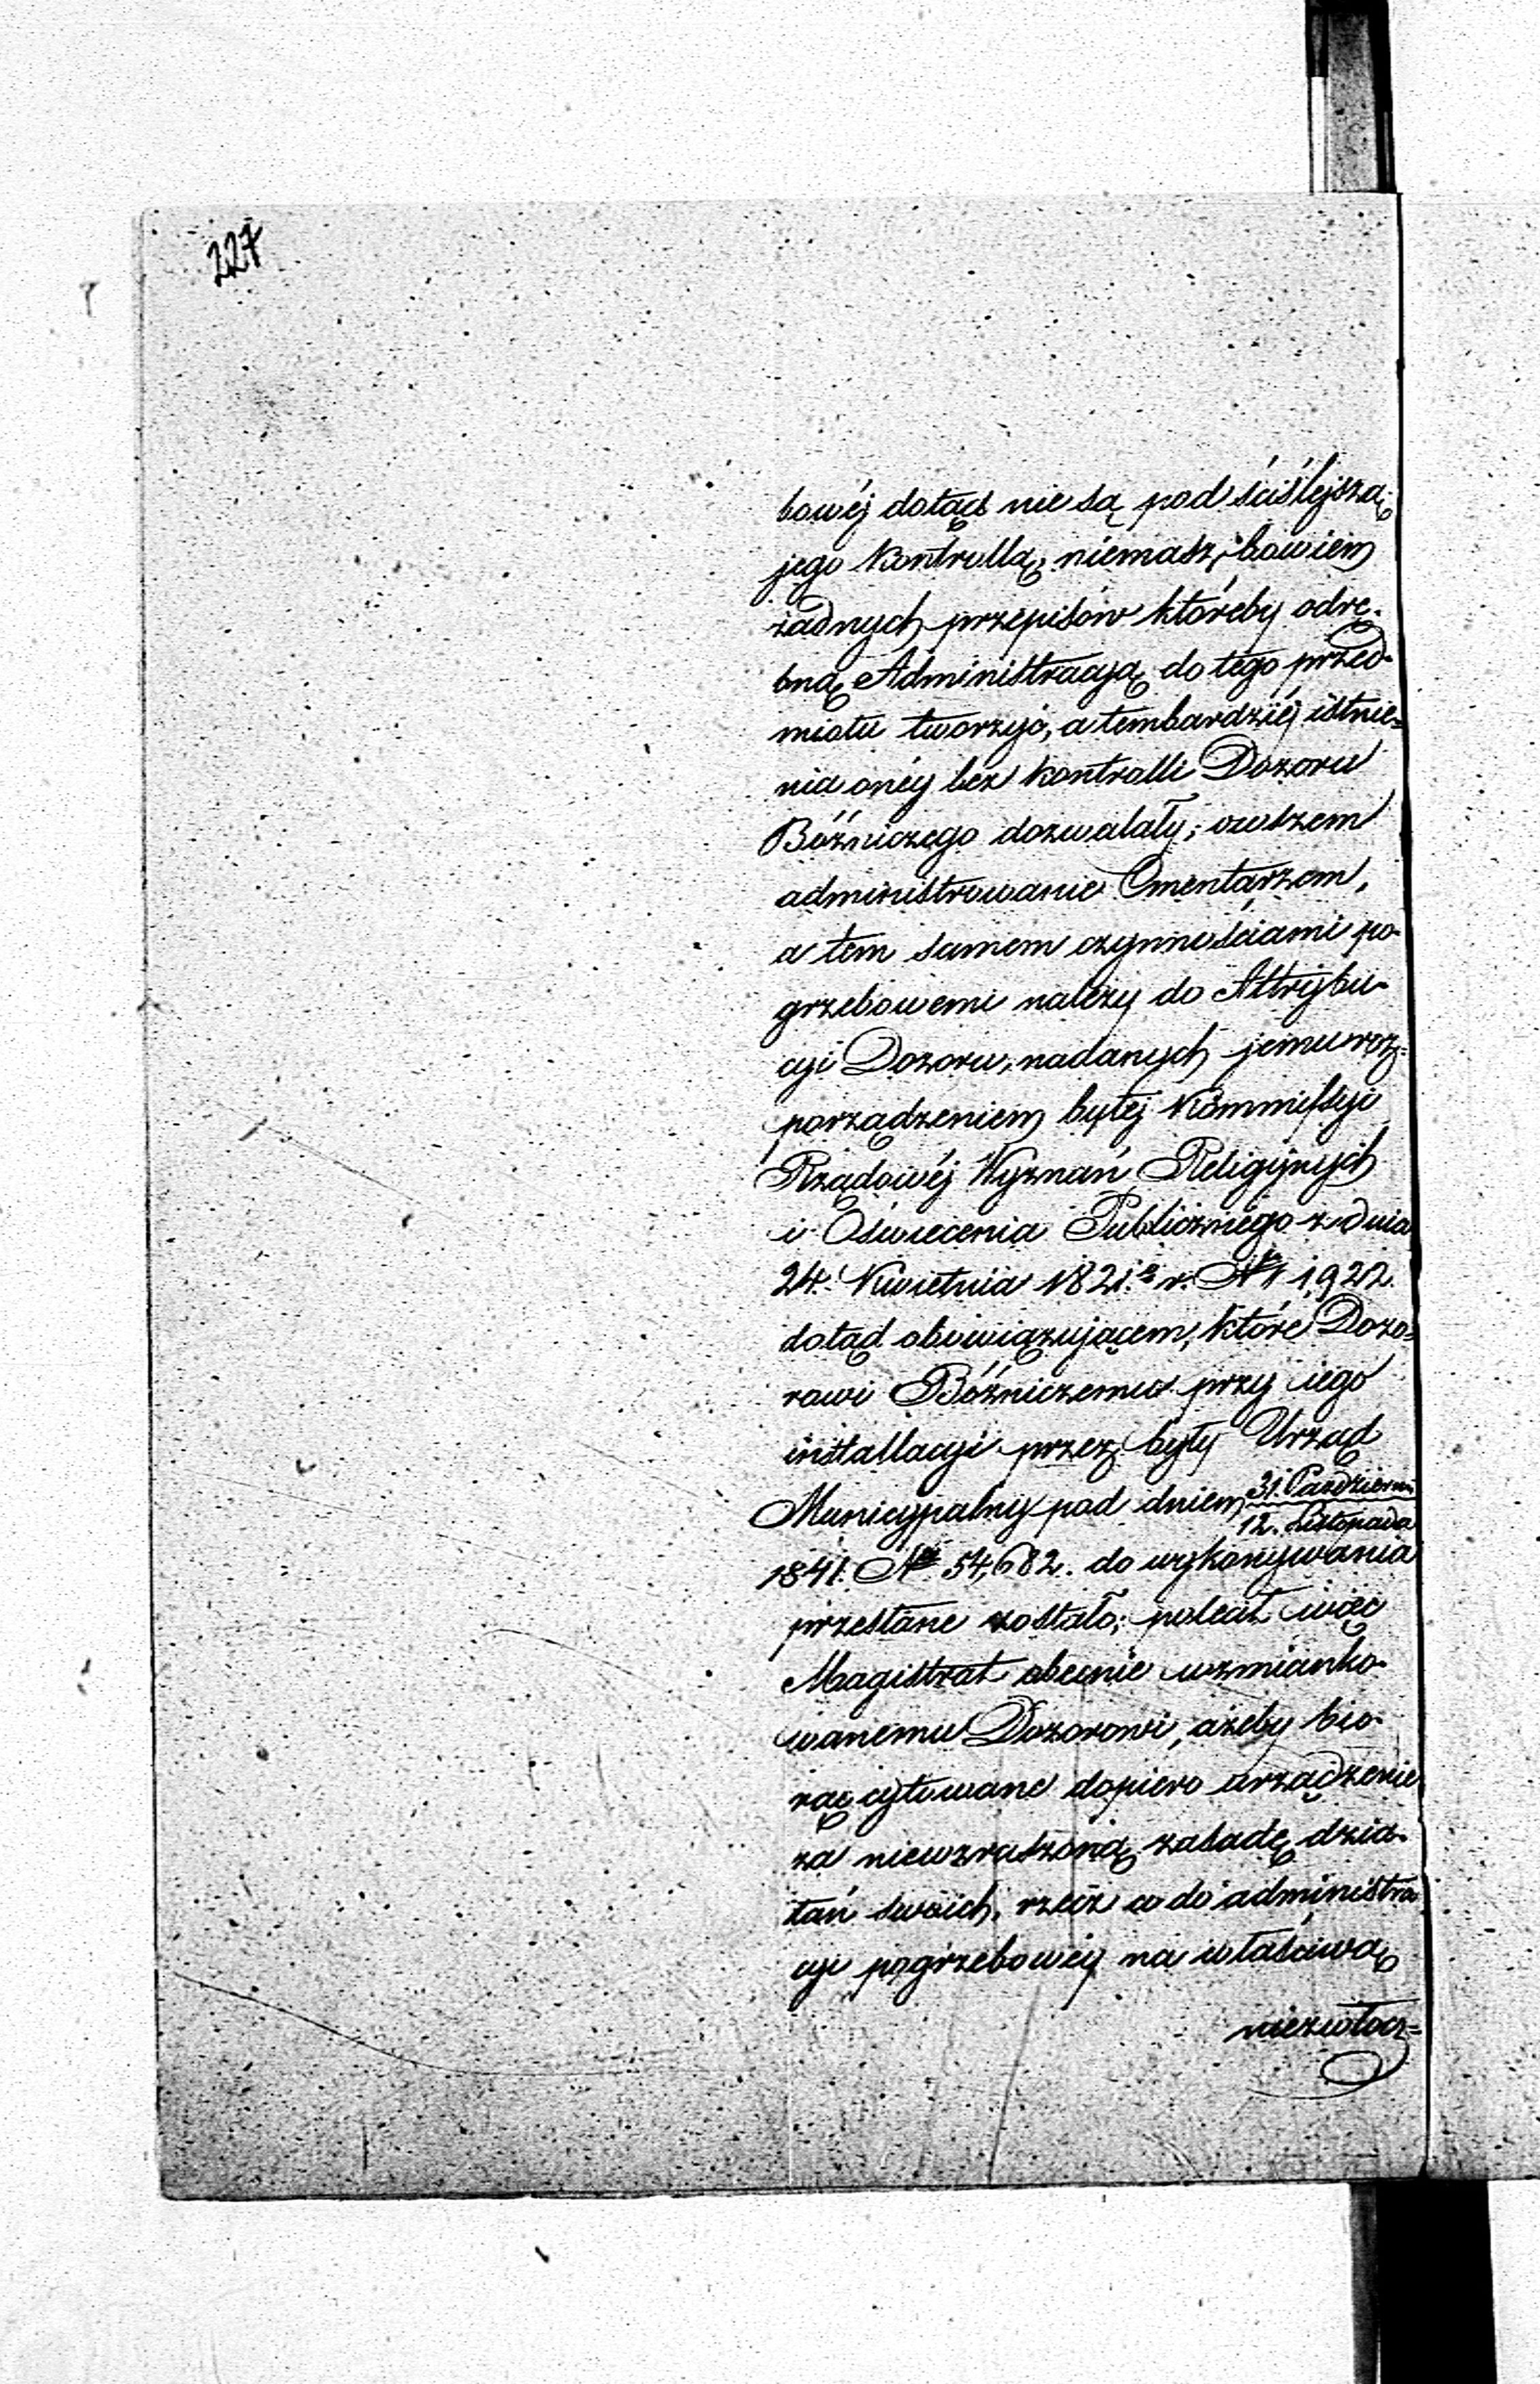 227
bowéj dotąd nie są pod ściślejszą
jego Kontrollą, niemasz bowiem
żadnych przepisów któreby odrę-
bną Administracyą do tego przed-
miotu tworzyć, a tembardziéj istnie=
nia onéy bez kontrolli Dozoru
Bóźniczego dozwalały; owszem
administrowanie Cmentarzem,
a tem samem czynnościami po-
grzebowemi należy do Attrybu-
cyi Dozoru, nadanych jemu roz=
porządzeniem byłej Kommissyi
Rządowéj Wyznań Religijnych
i Oświecenia Publicznego z dnia
24. Kwietnia 1821. r. No 1922.
dotąd obowiązującem, które Dozo=
rowi Bóźniczemu przy iego
installacyi przez były Urząd
Municypalny pod dniem 31. Październi
12. Listopada
1841. No 54,682. do wykonywania
przesłane zostało; polecał więc
Magistrat obecnie wzmianko-
wanemu Dozorowi, ażeby bio-
rąc cytowane dopiero urządzenie
za niewzruszoną zasadę dzia-
łań swoich, rzecz co do administra
cyi pogrzebowéy na właściwą
niezwłocz=